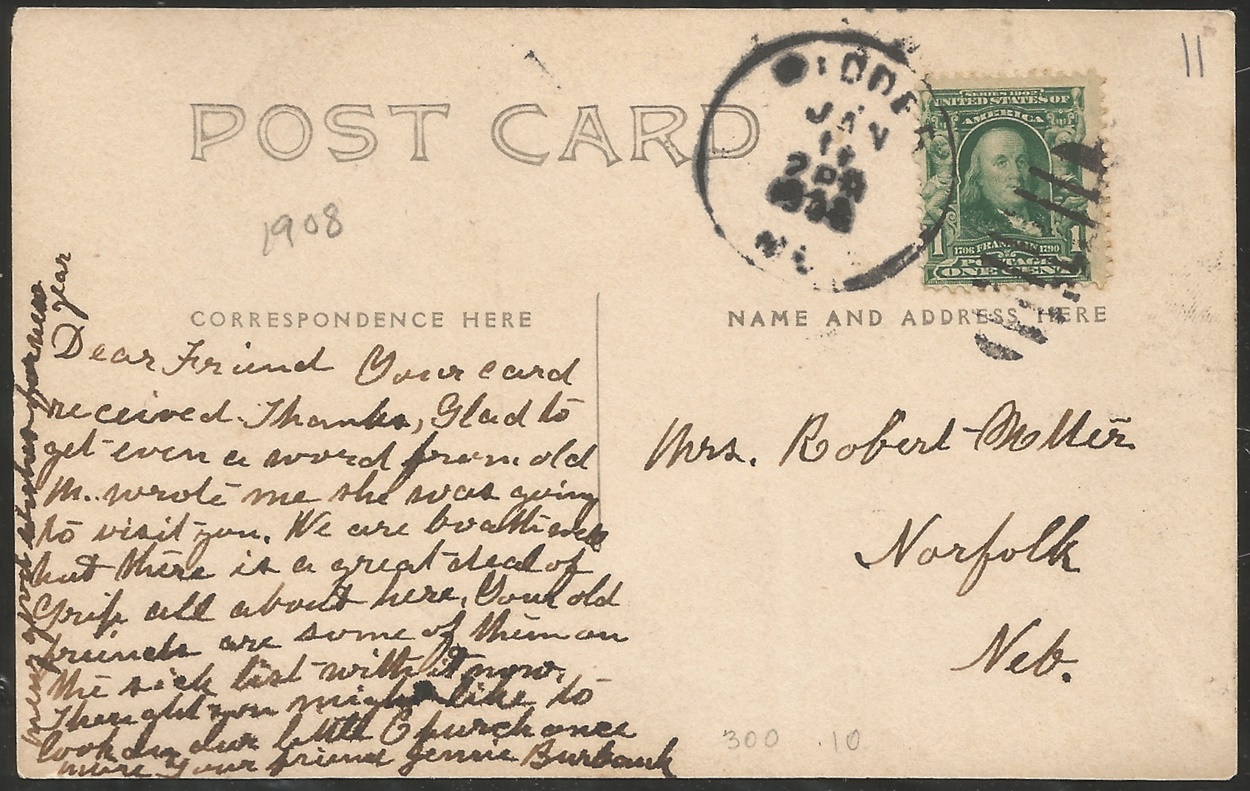 11
POST CARD
JAN
11
2 PM
SERIES 1902
UNITED STATES OF
AMERICA
1 1706 FRANKLIN 1790 1
POSTAGE
ONE CENT
1908
CORRESPONDENCE HERE
NAME AND ADDRESS HERE
Dear Friend Your card
received. Thanks, Glad to
get even a word from old
M. wrote me she was going
to visit you. We are both well
but there is a great deal of
Grip all about here. Your old
friends are some of them on
the sick list with it now.
Thought you might like to
look in our little Church once
more Your friend Jennie Burbank
many good wishes for new
year
Mrs. Robert
Norfolk
Neb.
300 10